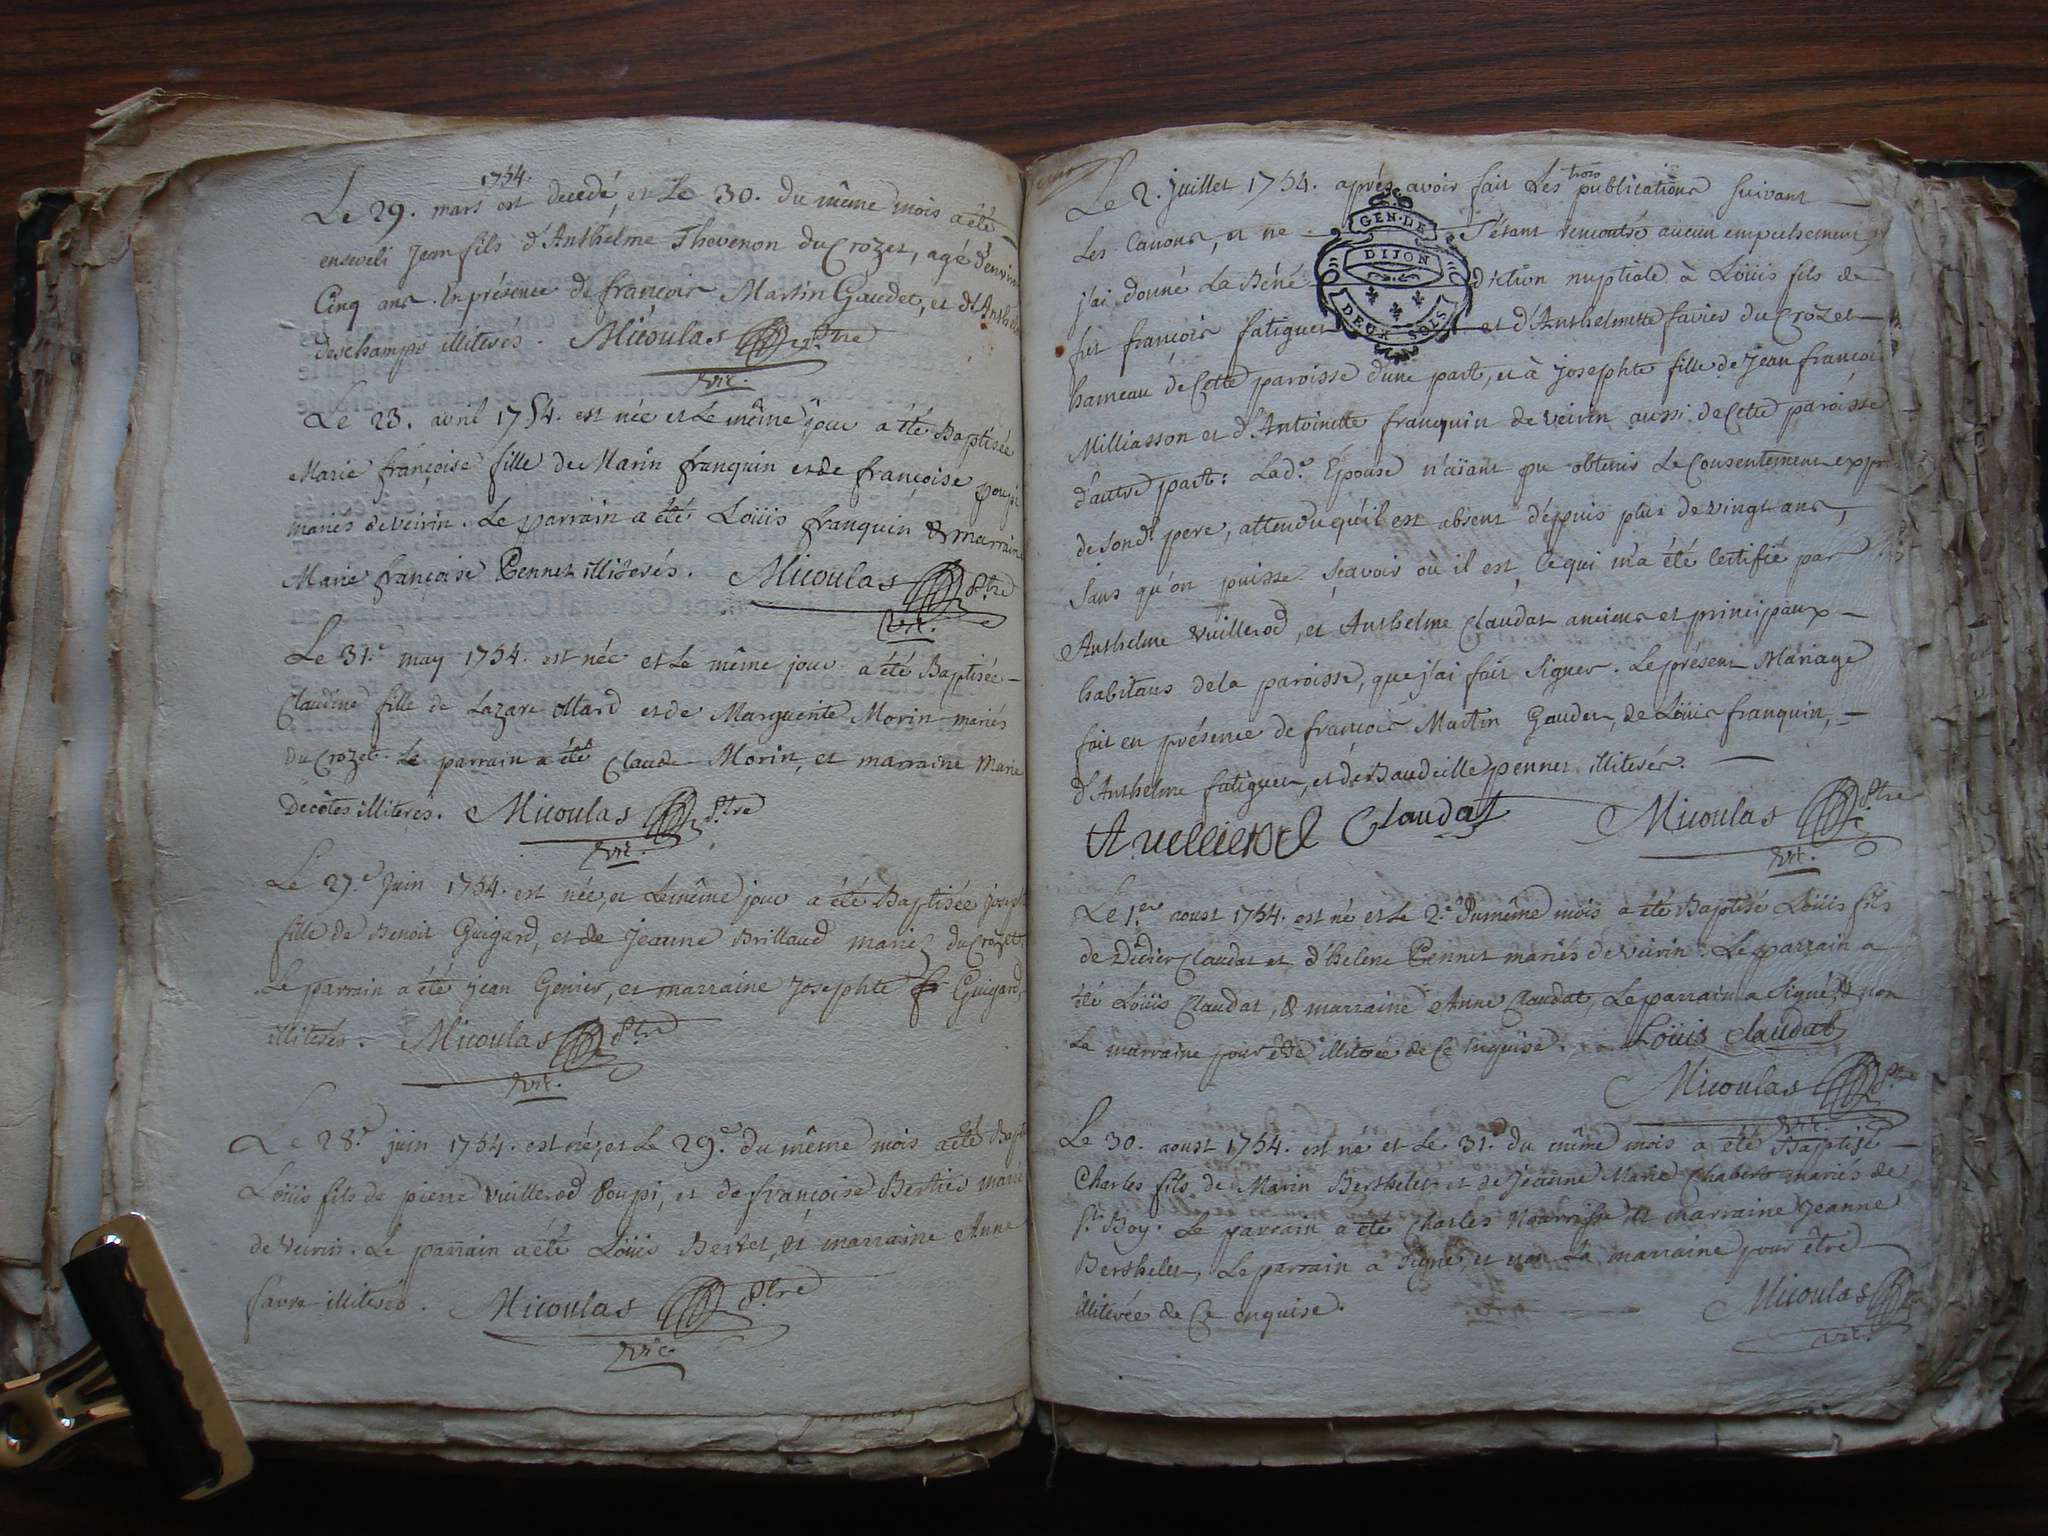 1754.
Le 29. mars est decedé, et Le 30. du même mois a été
enseveli Jean fils d'Anthelme Thevenon du Crozet, agé d'environ
Cinq ans. En présence de françois Martin Gaudet, et d'Anthelme
deschamps illiterés. Micoulas Ptre
vic.
Le 23. avril 1754. est née et Le même jour a été Baptisée
Marie françoise fille de Marin franquin et de françoise
mariés de veirin. Le parrain a été Loüis franquin & marraine
Marie françoise Pennet illiterés. Micoulas Ptre
vic.
Le 31.e may 1754. est née et Le même jour a été Baptisée
Claudine fille de Lazare ollard et de Marguerite Morin mariés
du Crozet. Le parrain a été Claude Morin, et marraine Marie
Decôtes illiterés. Micoulas Ptre
vic.
Le 27.e Juin 1754. est née, et Le même jour a été Baptisée
fille de Benoit Guigard, et de Jeanne Brillaud mariés du Crozet.
Le parrain a été jean Genier, et marraine Josephte Guigard,
illiterés. Micoulas Ptre
vic.
Le 28.e juin 1754. est né, et Le 29.e du même mois a été
Loüis fils de pierre vuillerod poupi, et de françoise Bertier mariés
de veirin. Le parrain a été Loüis Bertet, et marraine Anne
favre illiterés. Micoulas Ptre
vic.
Le 2. juillet 1754. aprés avoir fait Les trois publications suivant
Les Canons, et ne s'étant rencontré aucun empechement,
GEN. DE
DIJON
DEUX SOLS
j'ai donné La Béné diction nuptiale à Loüis fils de
fut françois fatiguet et d'Anthelmette favier du Crozet
hameau de Cette paroisse d'une part, et à josephte fille de Jean françois
Milliasson et d'Antoinette franquin de veirin aussi de Cette paroisse
d'autre part: Lad.e Epouse n'aïant pu obtenir Le Consentement
de sond. pere, attendu qu'il est absent d'éppuis plus de vingt ans,
sans qu'on puisse sçavoir où il est, Ce qui m'a été Certifié par
Anthelme vuillerod, et Anthelme Claudat anciens et principaux
habitans de la paroisse, que j'ai fait signer. Le présent Mariage
fait en présence de françois Martin Gaudet, de Loüis franquin,
d'Anthelme fatiguet, et de Baudeille pennet illiterés.
Claudat Micoulas Ptre
vic.
Le 1.er aoust 1754. est né et Le 2.e du même mois a été Baptisé Loüis fils
de Didier Claudat et d'helene Pennet mariés de veirin. Le parrain a
été Loüis Claudat, & marraine Anne Claudat, Le parrain a signé, & non
La marraine pour être illiterée de Ce enquise. Loüis Claudat
Micoulas Ptre
vic.
Le 30. aoust 1754. est né et Le 31.e du même mois a été Baptisé
Charles fils de Marin Berthelet et de Jeanne Marie Chabert mariés de
St. Boy. Le parrain a été Charles Nourrisse, & marraine Jeanne
Berthelet, Le parrain a signé, et non La marraine pour être
illiterée de Ce enquise. Micoulas
vic.